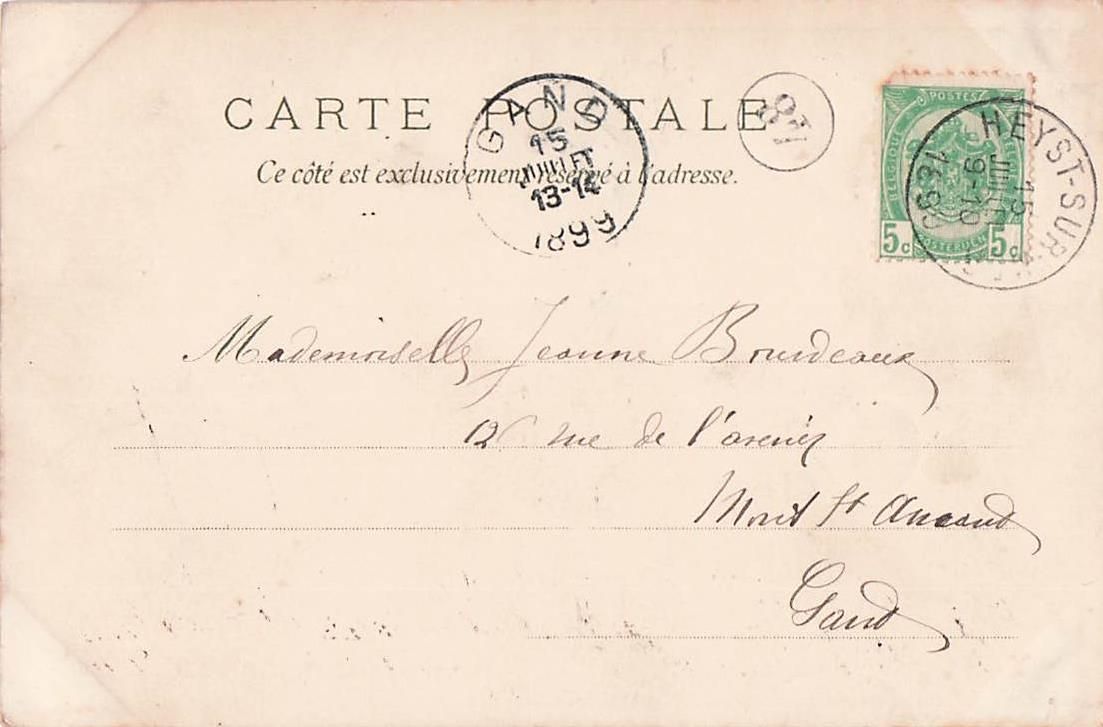 CARTE POSTALE
Ce côté est exclusivement réservé à l'adresse.
GAND
15
JUILLET
13-14
1899
48
POSTES
BELGIQUE
5c 5c
HEYST-SUR-MER
15
JUIL
9-10
1899
Mademoiselle Jeanne Bourdeaux
12 rue de l'avenir
Mont St Amand
Gand